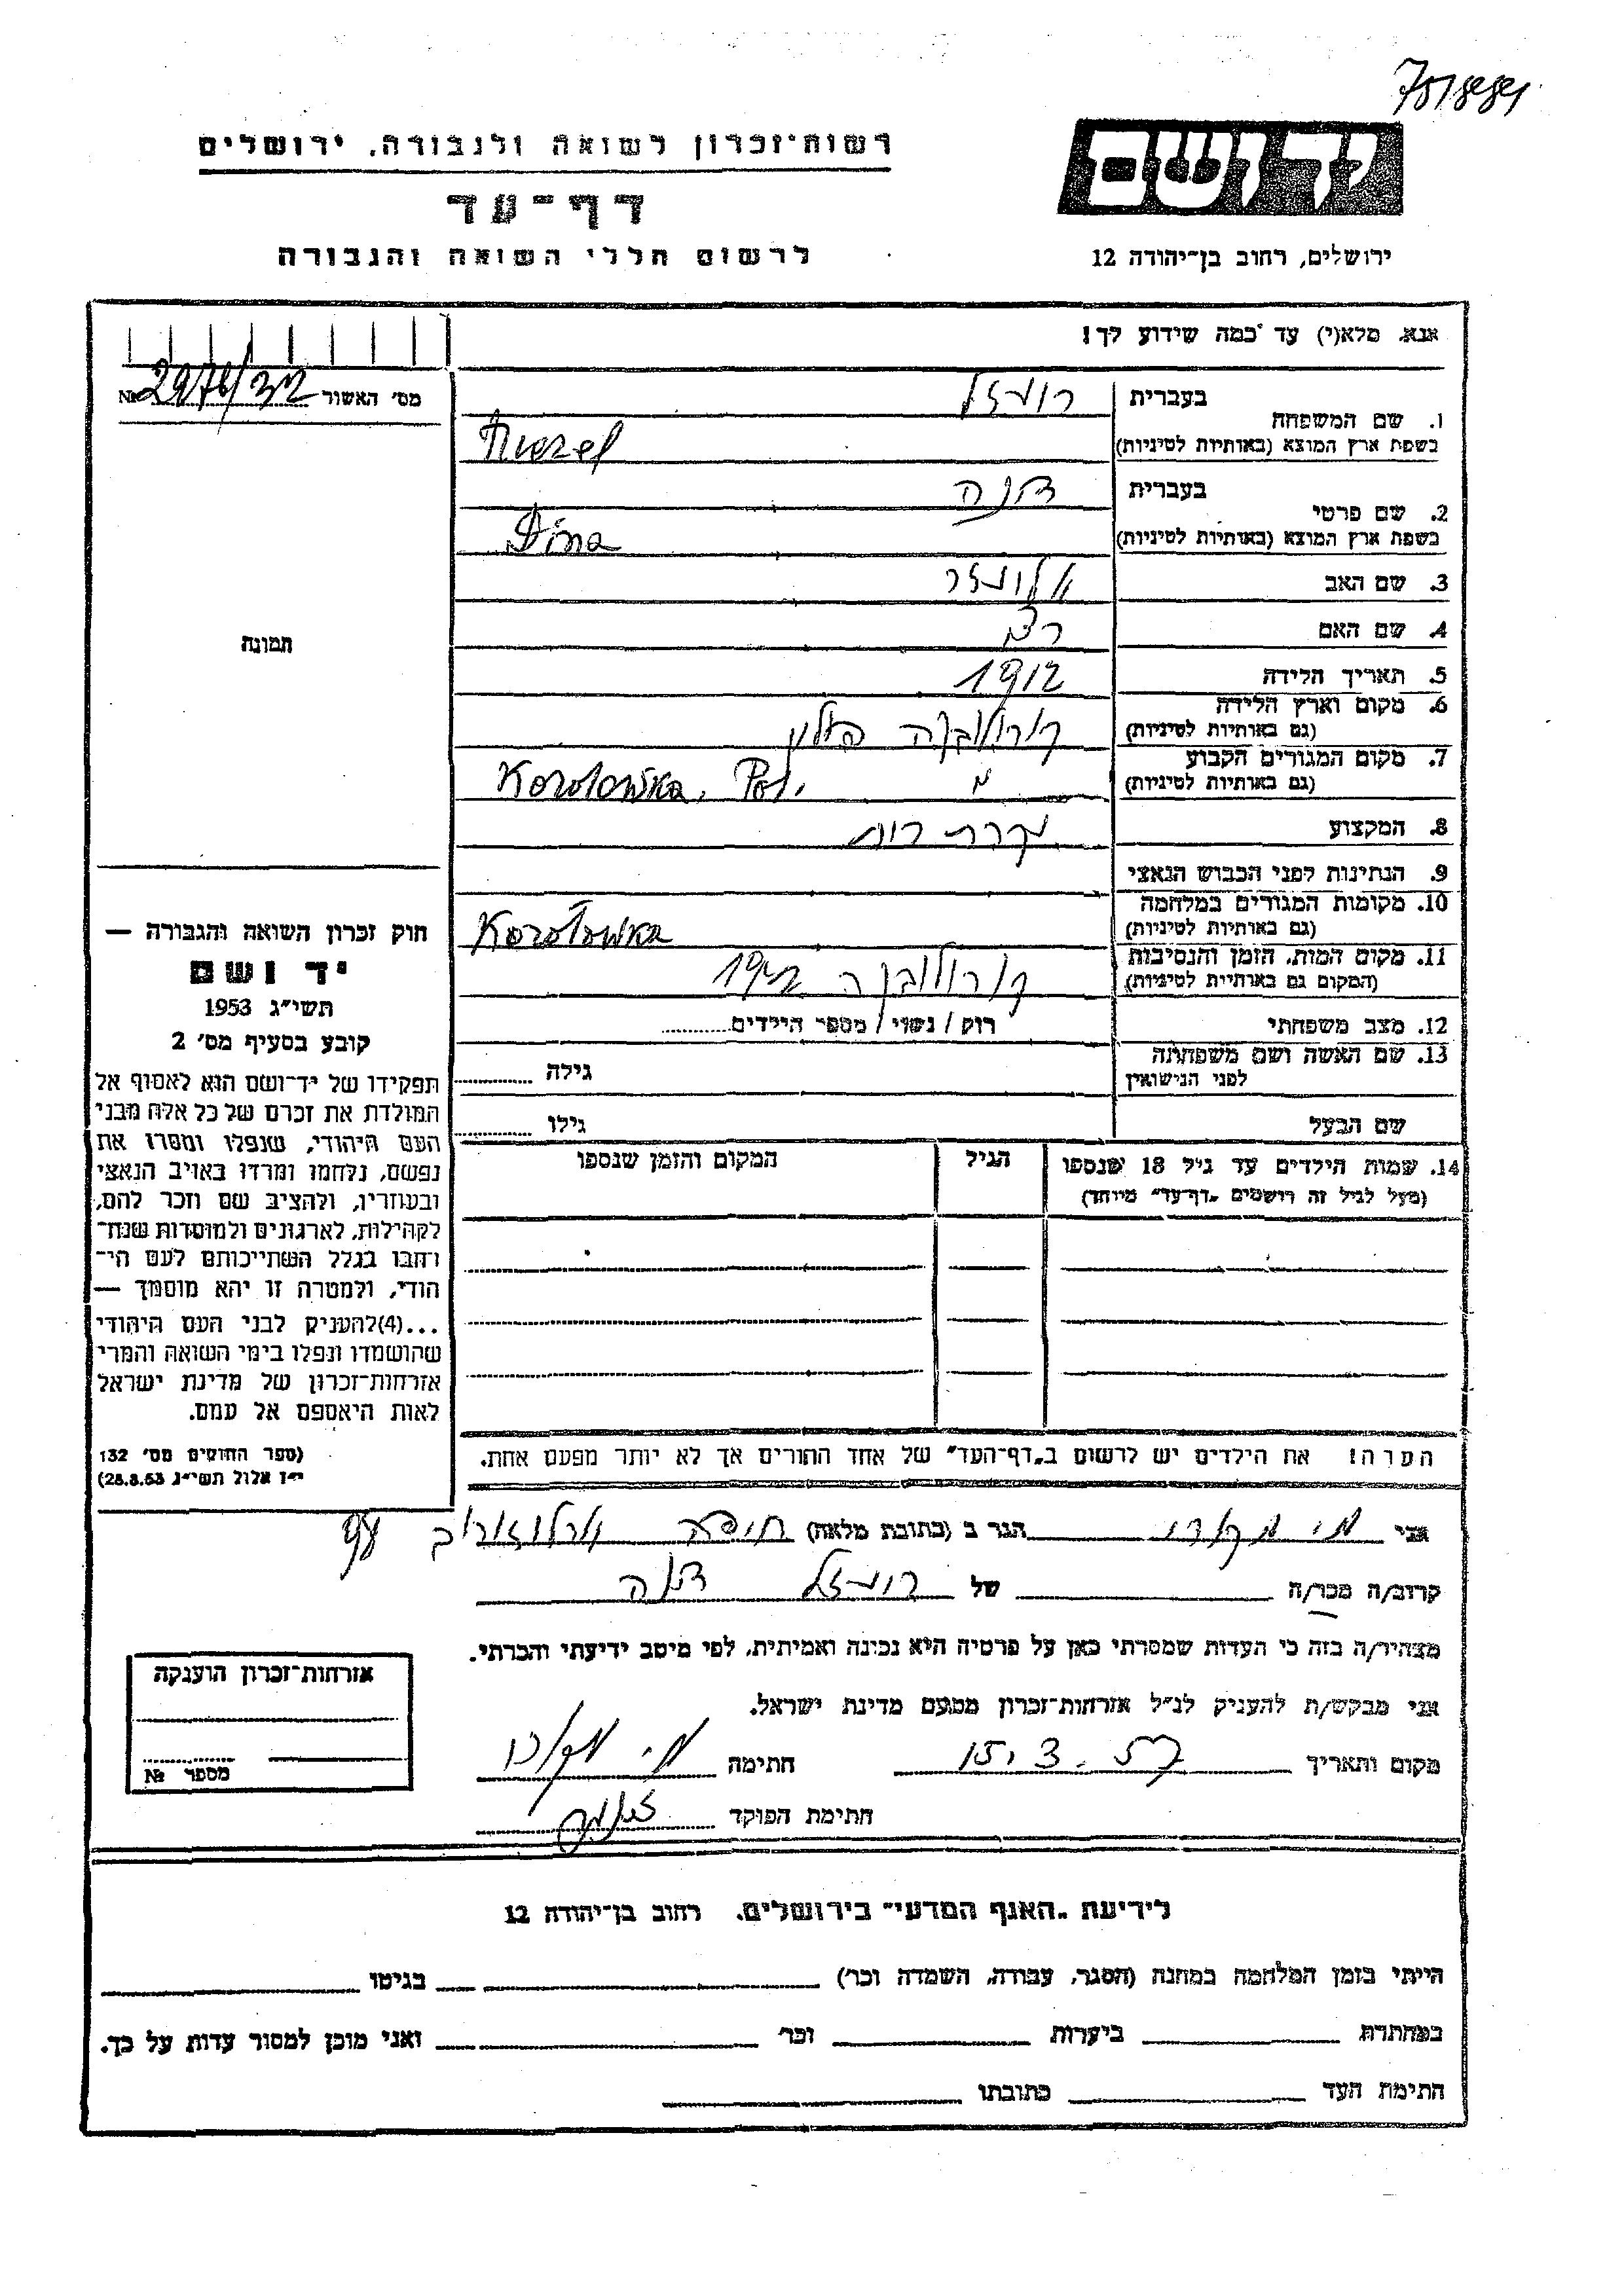 רשות־זכרון לשואה ולגבורה, ירושלים
דף־עד
לרשום חללי השואה והגבורה
יד ושם
ירושלים, רחוב בן־יהודה 12
אנא, מלא(י) עד כמה שידוע לך!
מס' האשור № 2976/32
1. שם המשפחה
בעברית
בשפת ארץ המוצא (באותיות לטיניות)
2. שם פרטי
בעברית דינה
בשפת ארץ המוצא (באותיות לטיניות) Dina
3. שם האב
4. שם האם
5. תאריך הלידה 1912
6. מקום וארץ הלידה
(גם באותיות לטיניות) קורולובקה פולין
7. מקום המגורים הקבוע
(גם באותיות לטיניות) Korolowka, Pol.
8. המקצוע עקרת בית
9. הנתינות לפני הכבוש הנאצי
10. מקומות המגורים במלחמה
(גם באותיות לטיניות) Korołowka
11. מקום המות, הזמן והנסיבות
(המקום גם באותיות לטיניות) קורולובקה 1942
12. מצב משפחתי
רוק / נשוי / מספר הילדים
13. שם האשה ושם משפחתה
לפני הנישואין
גילה
שם הבעל
גילו
14. שמות הילדים עד גיל 18 שנספו
(מעל לגיל זה רושמים „דף־עד" מיוחד)
הגיל
המקום והזמן שנספו
הערה! את הילדים יש לרשום ב„דף־העד" של אחד ההורים אך לא יותר מפעם אחת.
תמונה
חוק זכרון השואה והגבורה —
יד ושם
תשי"ג 1953
קובע בסעיף מס' 2
תפקידו של יד־ושם הוא לאסוף אל
המולדת את זכרם של כל אלה מבני
העם היהודי, שנפלו ומסרו את
נפשם, נלחמו ומרדו באויב הנאצי
ובעוזריו, ולהציב שם וזכר להם,
לקהילות, לארגונים ולמוסדות שנח־
רחבו בגלל השתייכותם לעם הי־
הודי, ולמטרה זו יהא מוסמך —
...(4) להעניק לבני העם היהודי
שהושמדו ונפלו בימי השואה והמרי
אזרחות־זכרון של מדינת ישראל
לאות היאספם אל עמם.
(ספר החוקים מס' 132
י"ז אלול תשי"ג 28.8.53)
אני הגר ב (כתובת מלאה) חיפה ארלוזורוב 98
קרוב/ה מכר/ה של דינה
מצהיר/ה בזה כי העדות שמסרתי כאן על פרטיה היא נכונה ואמיתית, לפי מיטב ידיעתי והכרתי.
אני מבקש/ת להעניק לנ"ל אזרחות־זכרון מטעם מדינת ישראל.
מקום ותאריך 15.3.57 חתימה
חתימת הפוקד
אזרחות־זכרון הוענקה
מספר №
לידיעת „האגף המדעי" בירושלים, רחוב בן־יהודה 12
הייתי בזמן המלחמה במחנה (הסגר, עבודה, השמדה וכר') בגיטו
במחתרת ביערות וכר' ואני מוכן למסור עדות על כך.
חתימת העד כתובתו